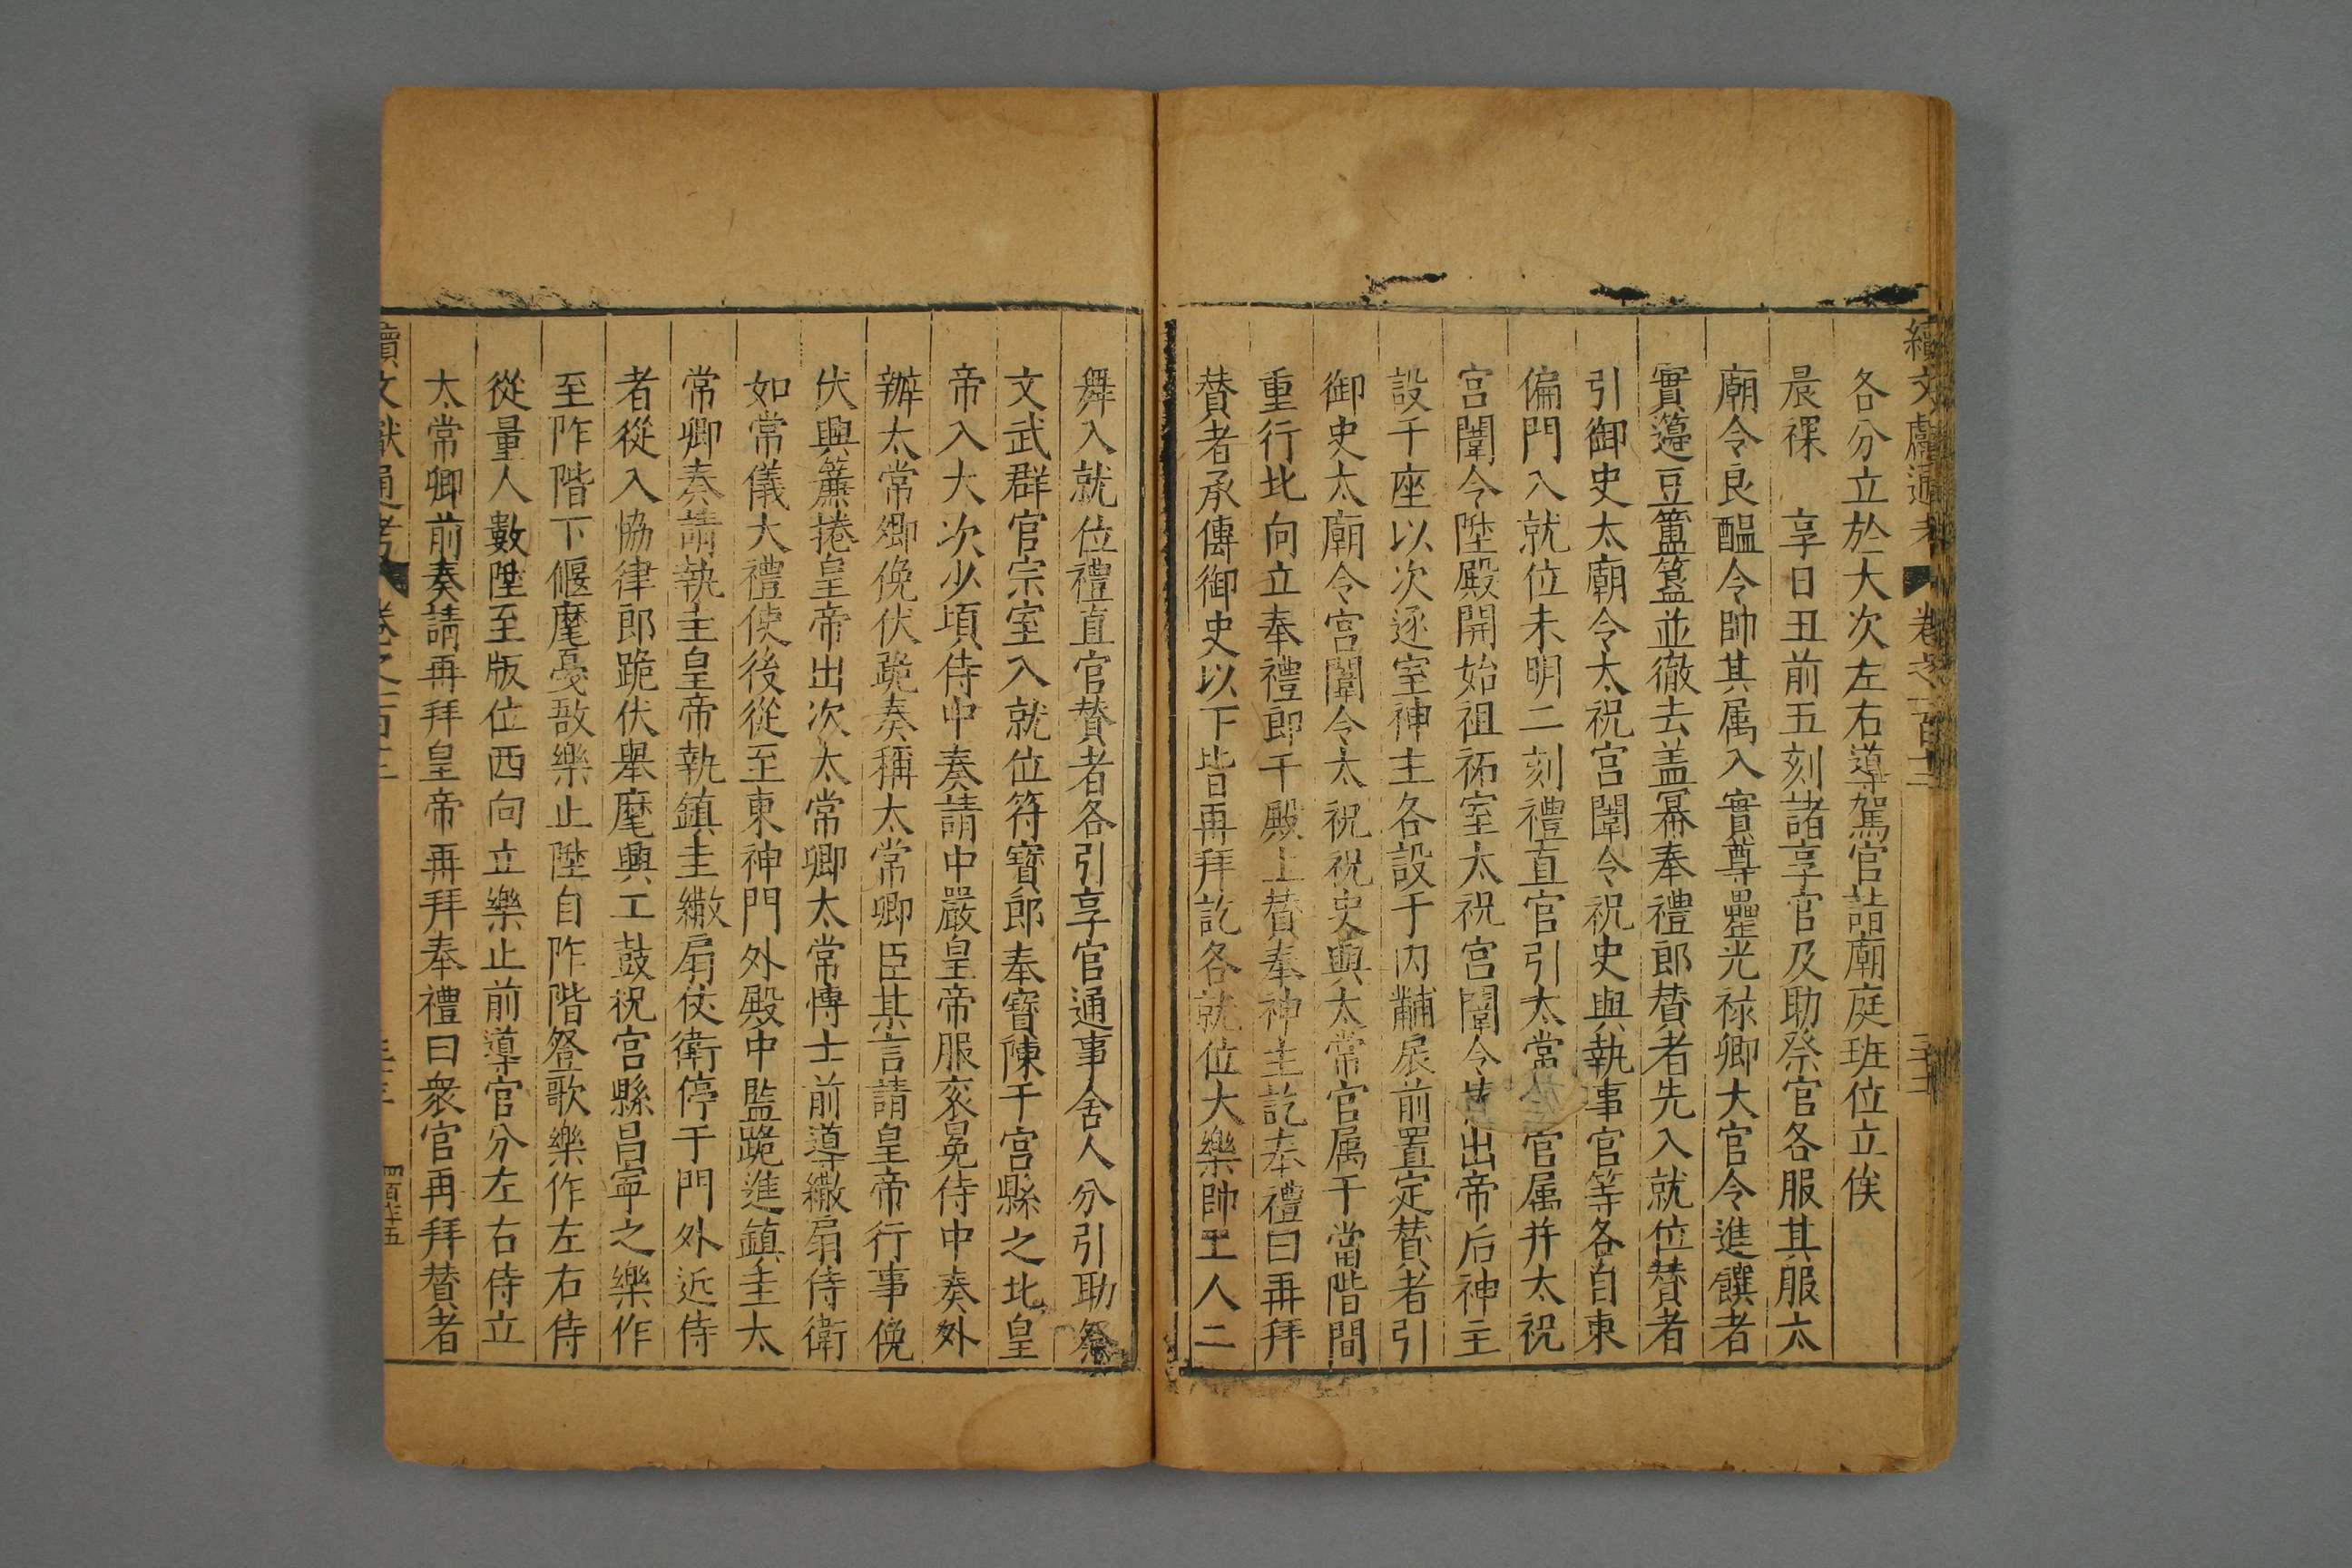 各分立於大次左右導駕官詣廟庭班位立俟
晨祼　享日丑前五刻諸享官及助祭官各服其服太
廟令良醞令帥其属入實尊罍光禄卿大官令進饌者
實籩豆簠簋並徹去盖冪奉禮郎賛者先入就位賛者
引御史太廟令太祝宫闈令祝史與執事官等各自東
偏門入就位未明二刻禮直官引太常 官属并太祝
宫闈令陞殿開始祖祏室太祝宫闈令 出帝后神主
設于座以次逐室神主各設于内黼扆前置定賛者引
御史太廟令宫闈令太祝祝史與太常官属于當階間
重行北向立奉禮郎于殿上賛奉神主訖奉禮曰再拜
賛者承傳御史以下皆再拜訖各就位大樂帥工人二
舞入就位禮直官賛者各引享官通事舍人分引助祭
文武群官宗室入就位符寶郎奉寶陳于宫縣之北皇
帝入大次少頃侍中奏請中嚴皇帝服衮冕侍中奏外
辦太常卿俛伏跪奏稱太常卿臣某言請皇帝行事俛
伏興簾捲皇帝出次太常卿太常博士前導繖扇侍衛
如常儀大禮使後從至東神門外殿中監跪進鎮圭太
常卿奏請執圭皇帝執鎮圭繖扇仗衛停于門外近侍
者從入恊律郎跪伏舉麾興工鼓柷宫縣昌寧之樂作
至阼階下偃麾戞敔樂止陞自阼階登歌樂作左右侍
從量人數陞至版位西向立樂止前導官分左右侍立
太常卿前奏請再拜皇帝再拜奉禮曰衆官再拜賛者
續文獻通考　卷之一百三